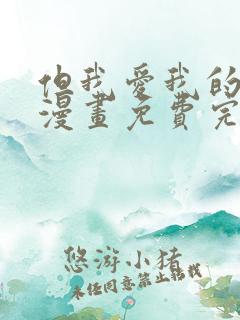 但我愛我的
漫畫免費完
悠游小猪
未经同意禁止转载